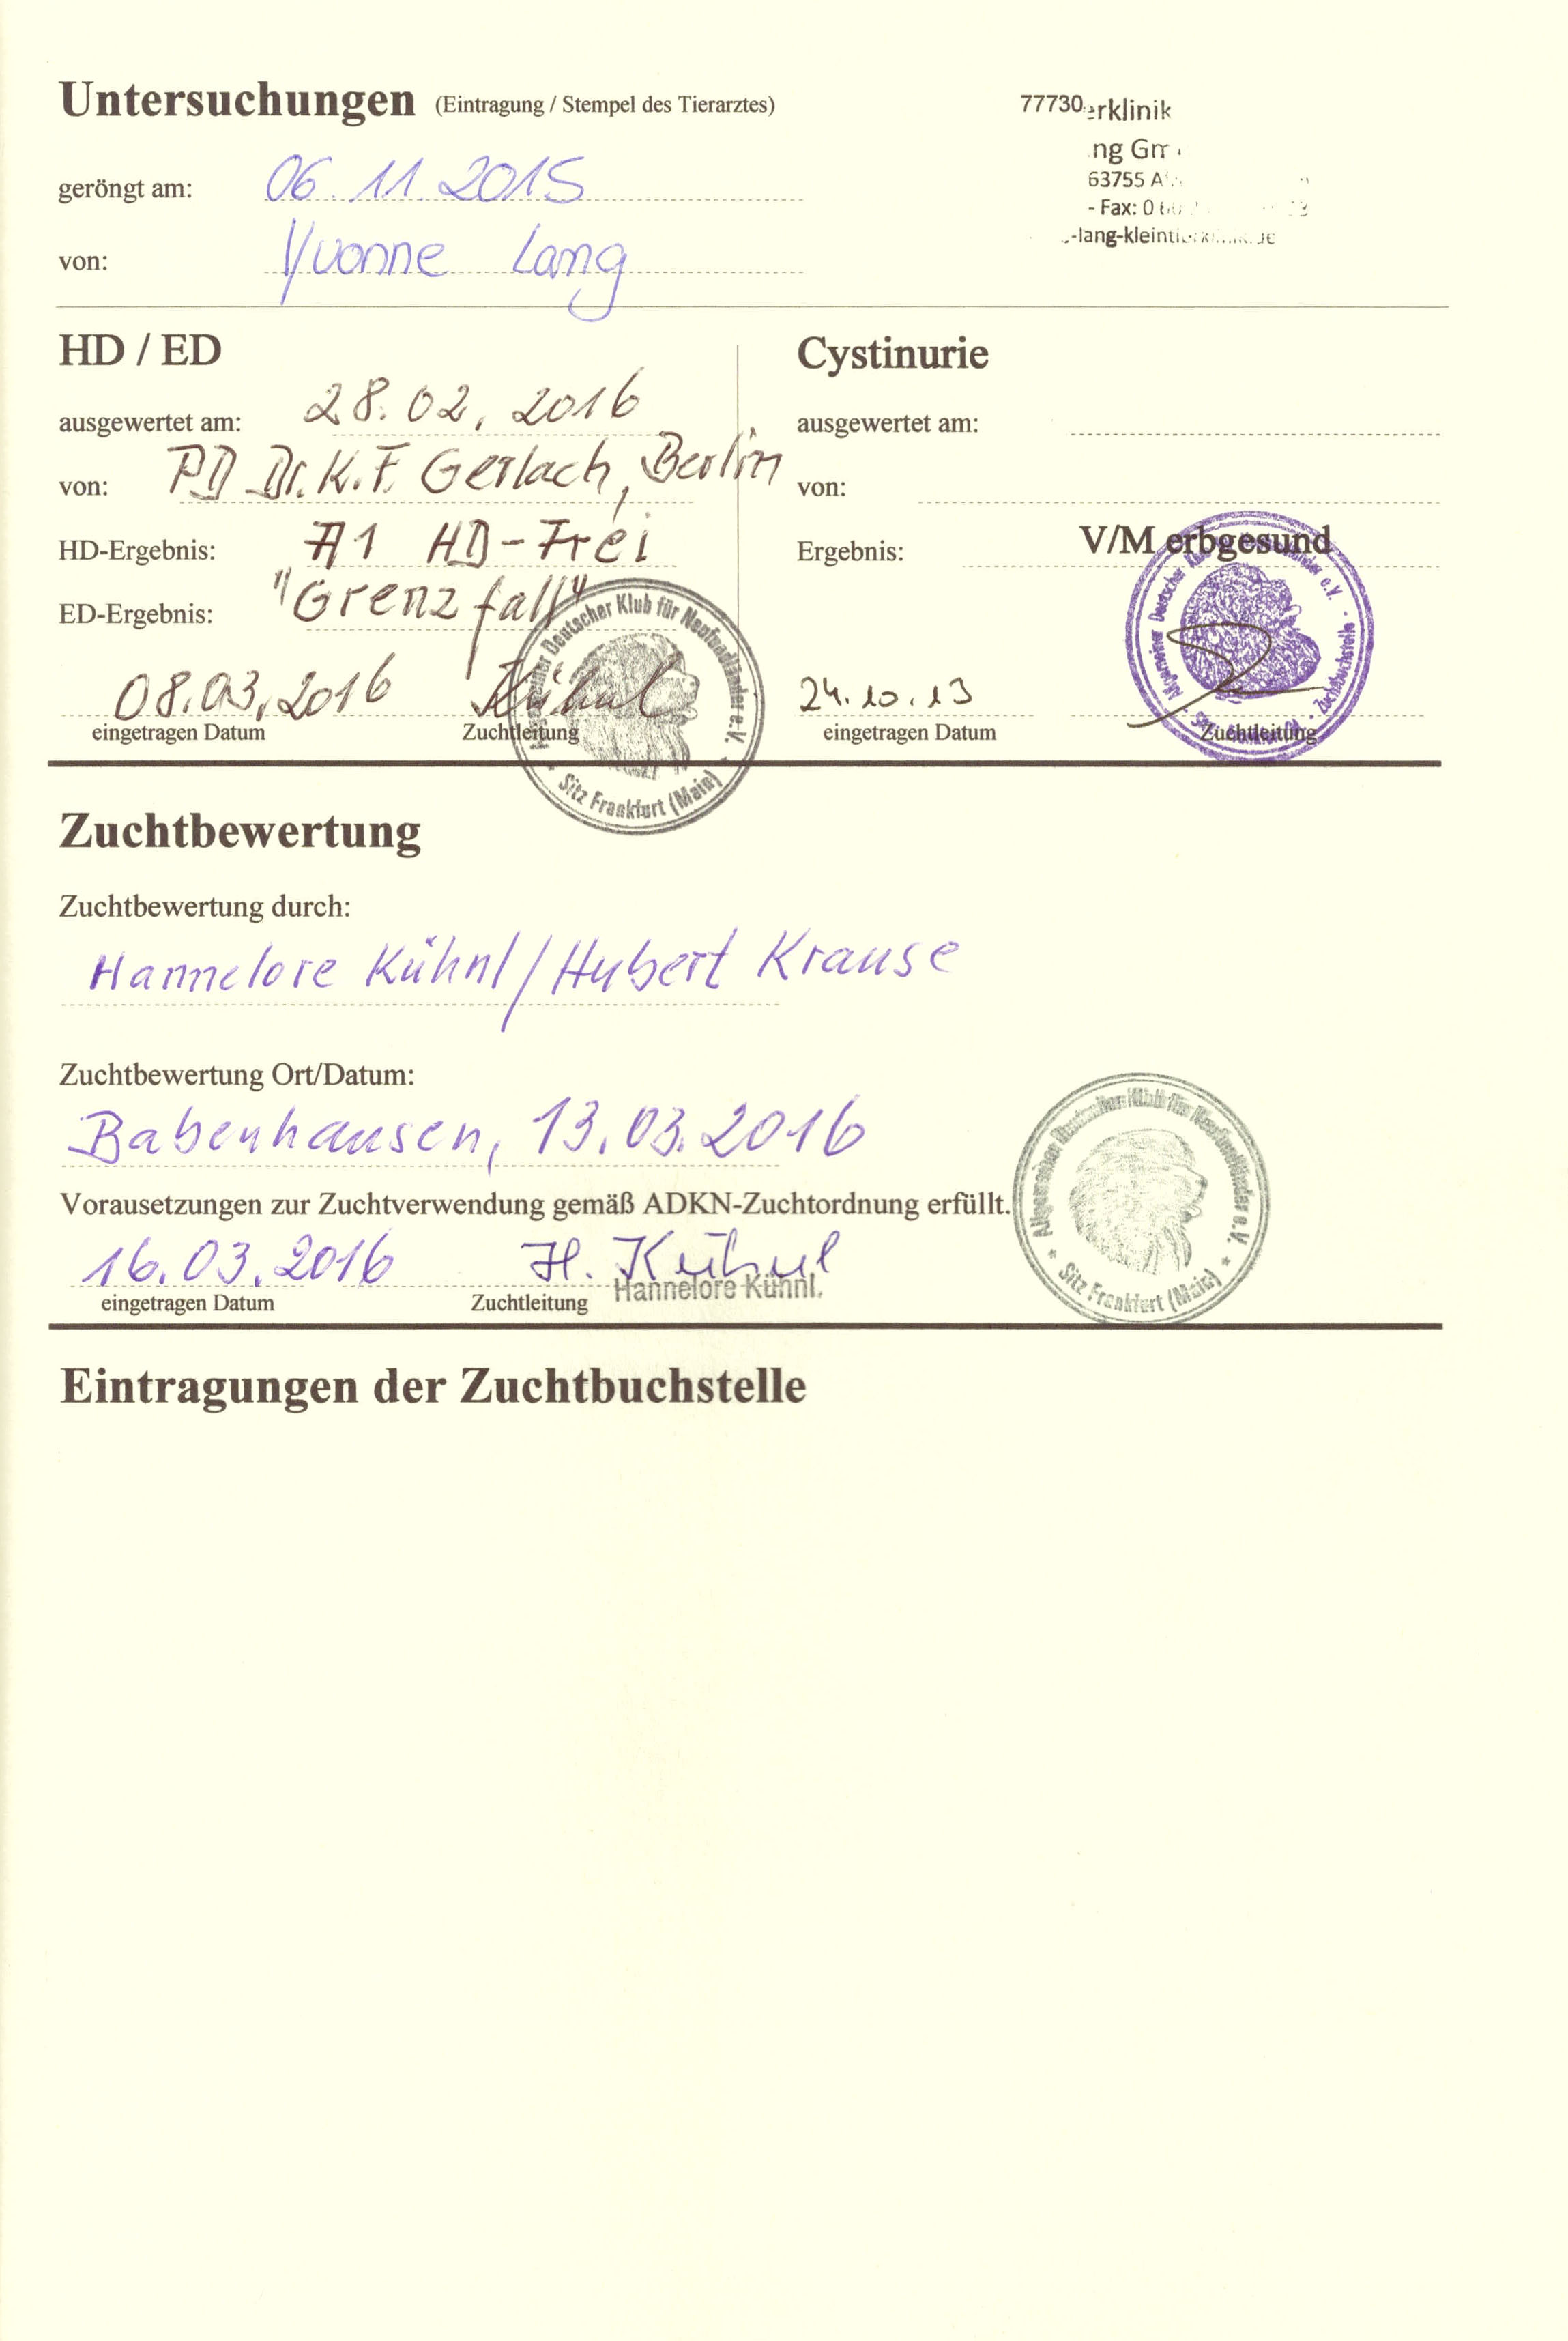 Untersuchungen (Eintragung / Stempel des Tierarztes)
77730
erklinik
ng Gm
63755 A
- Fax: 0
geröngt am: 06.11.2015
-lang-kleintierklinik.de
von: Yvonne Lang
HD / ED
ausgewertet am: 28.02.2016
von: PD Dr. K.F. Gerlach, Berlin
HD-Ergebnis: A1 HD-Frei
ED-Ergebnis: "Grenzfall"
08.03.2016 Kühnl
eingetragen Datum Zuchtleitung
Allgemeiner Deutscher Klub für Neufundländer e.V.
* Sitz Frankfurt (Main) *
Cystinurie
ausgewertet am:
von:
Ergebnis: V/M erbgesund
24.10.13
eingetragen Datum Zuchtleitung
Allgemeiner Deutscher Klub für Neufundländer e.V. - Zuchtbuchstelle
Zuchtbewertung
Zuchtbewertung durch:
Hannelore Kühnl/Hubert Krause
Zuchtbewertung Ort/Datum:
Babenhausen, 13.03.2016
Vorausetzungen zur Zuchtverwendung gemäß ADKN-Zuchtordnung erfüllt.
16.03.2016 H. Kühnl
Hannelore Kühnl.
eingetragen Datum Zuchtleitung
Allgemeiner Deutscher Klub für Neufundländer e.V.
* Sitz Frankfurt (Main) *
Eintragungen der Zuchtbuchstelle